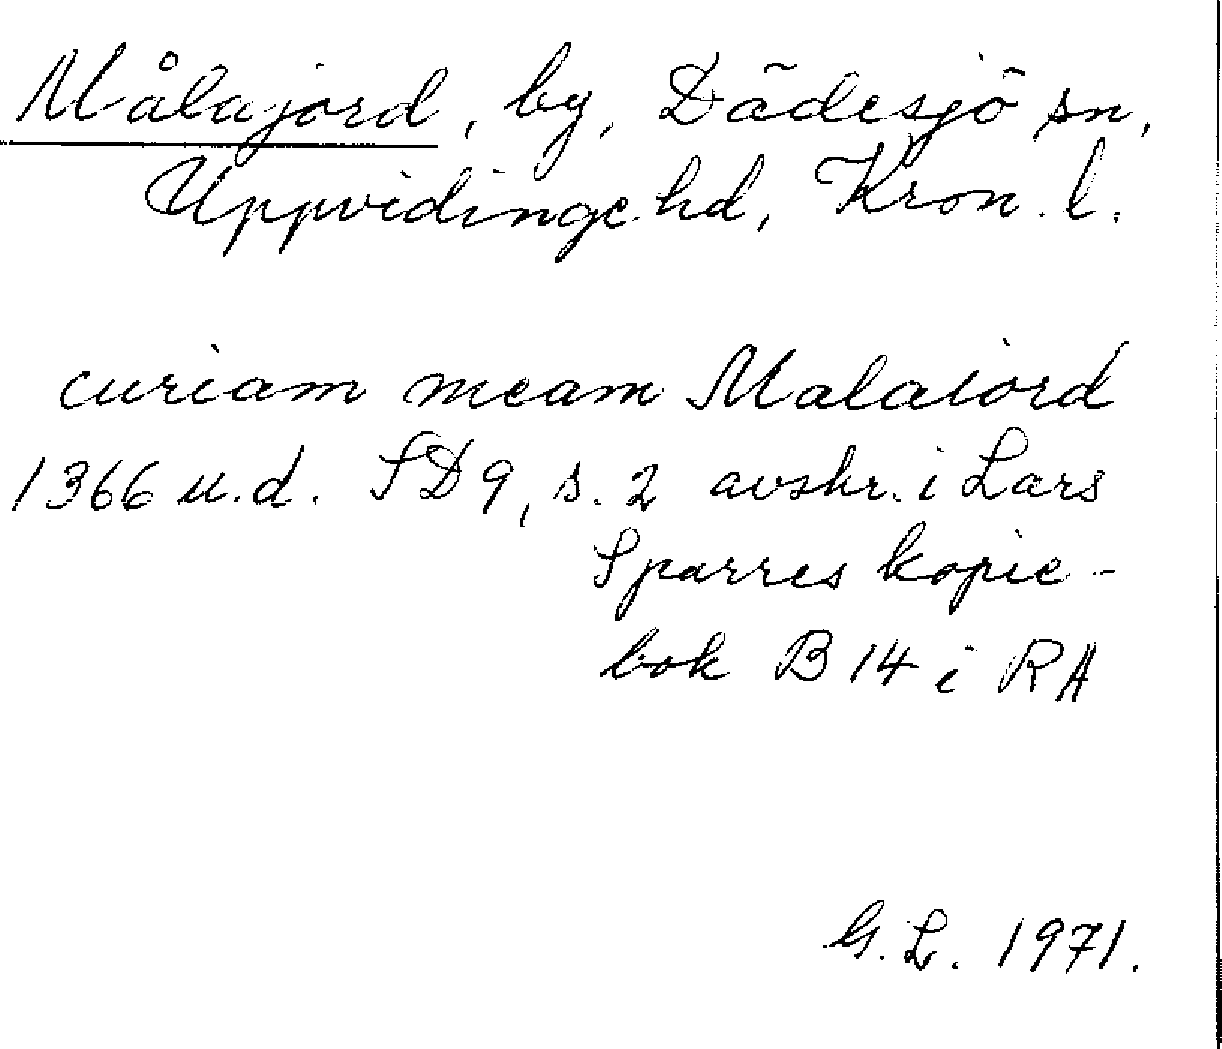 Målajord, by, Dädesjö sn,
Uppvidinge hd, Kron. l.
curiam meam Malaiord
1366 u.d. SD 9, s. 2 avskr. i Lars
Sparres kopie-
bok B 14 i RA
G.L. 1971.